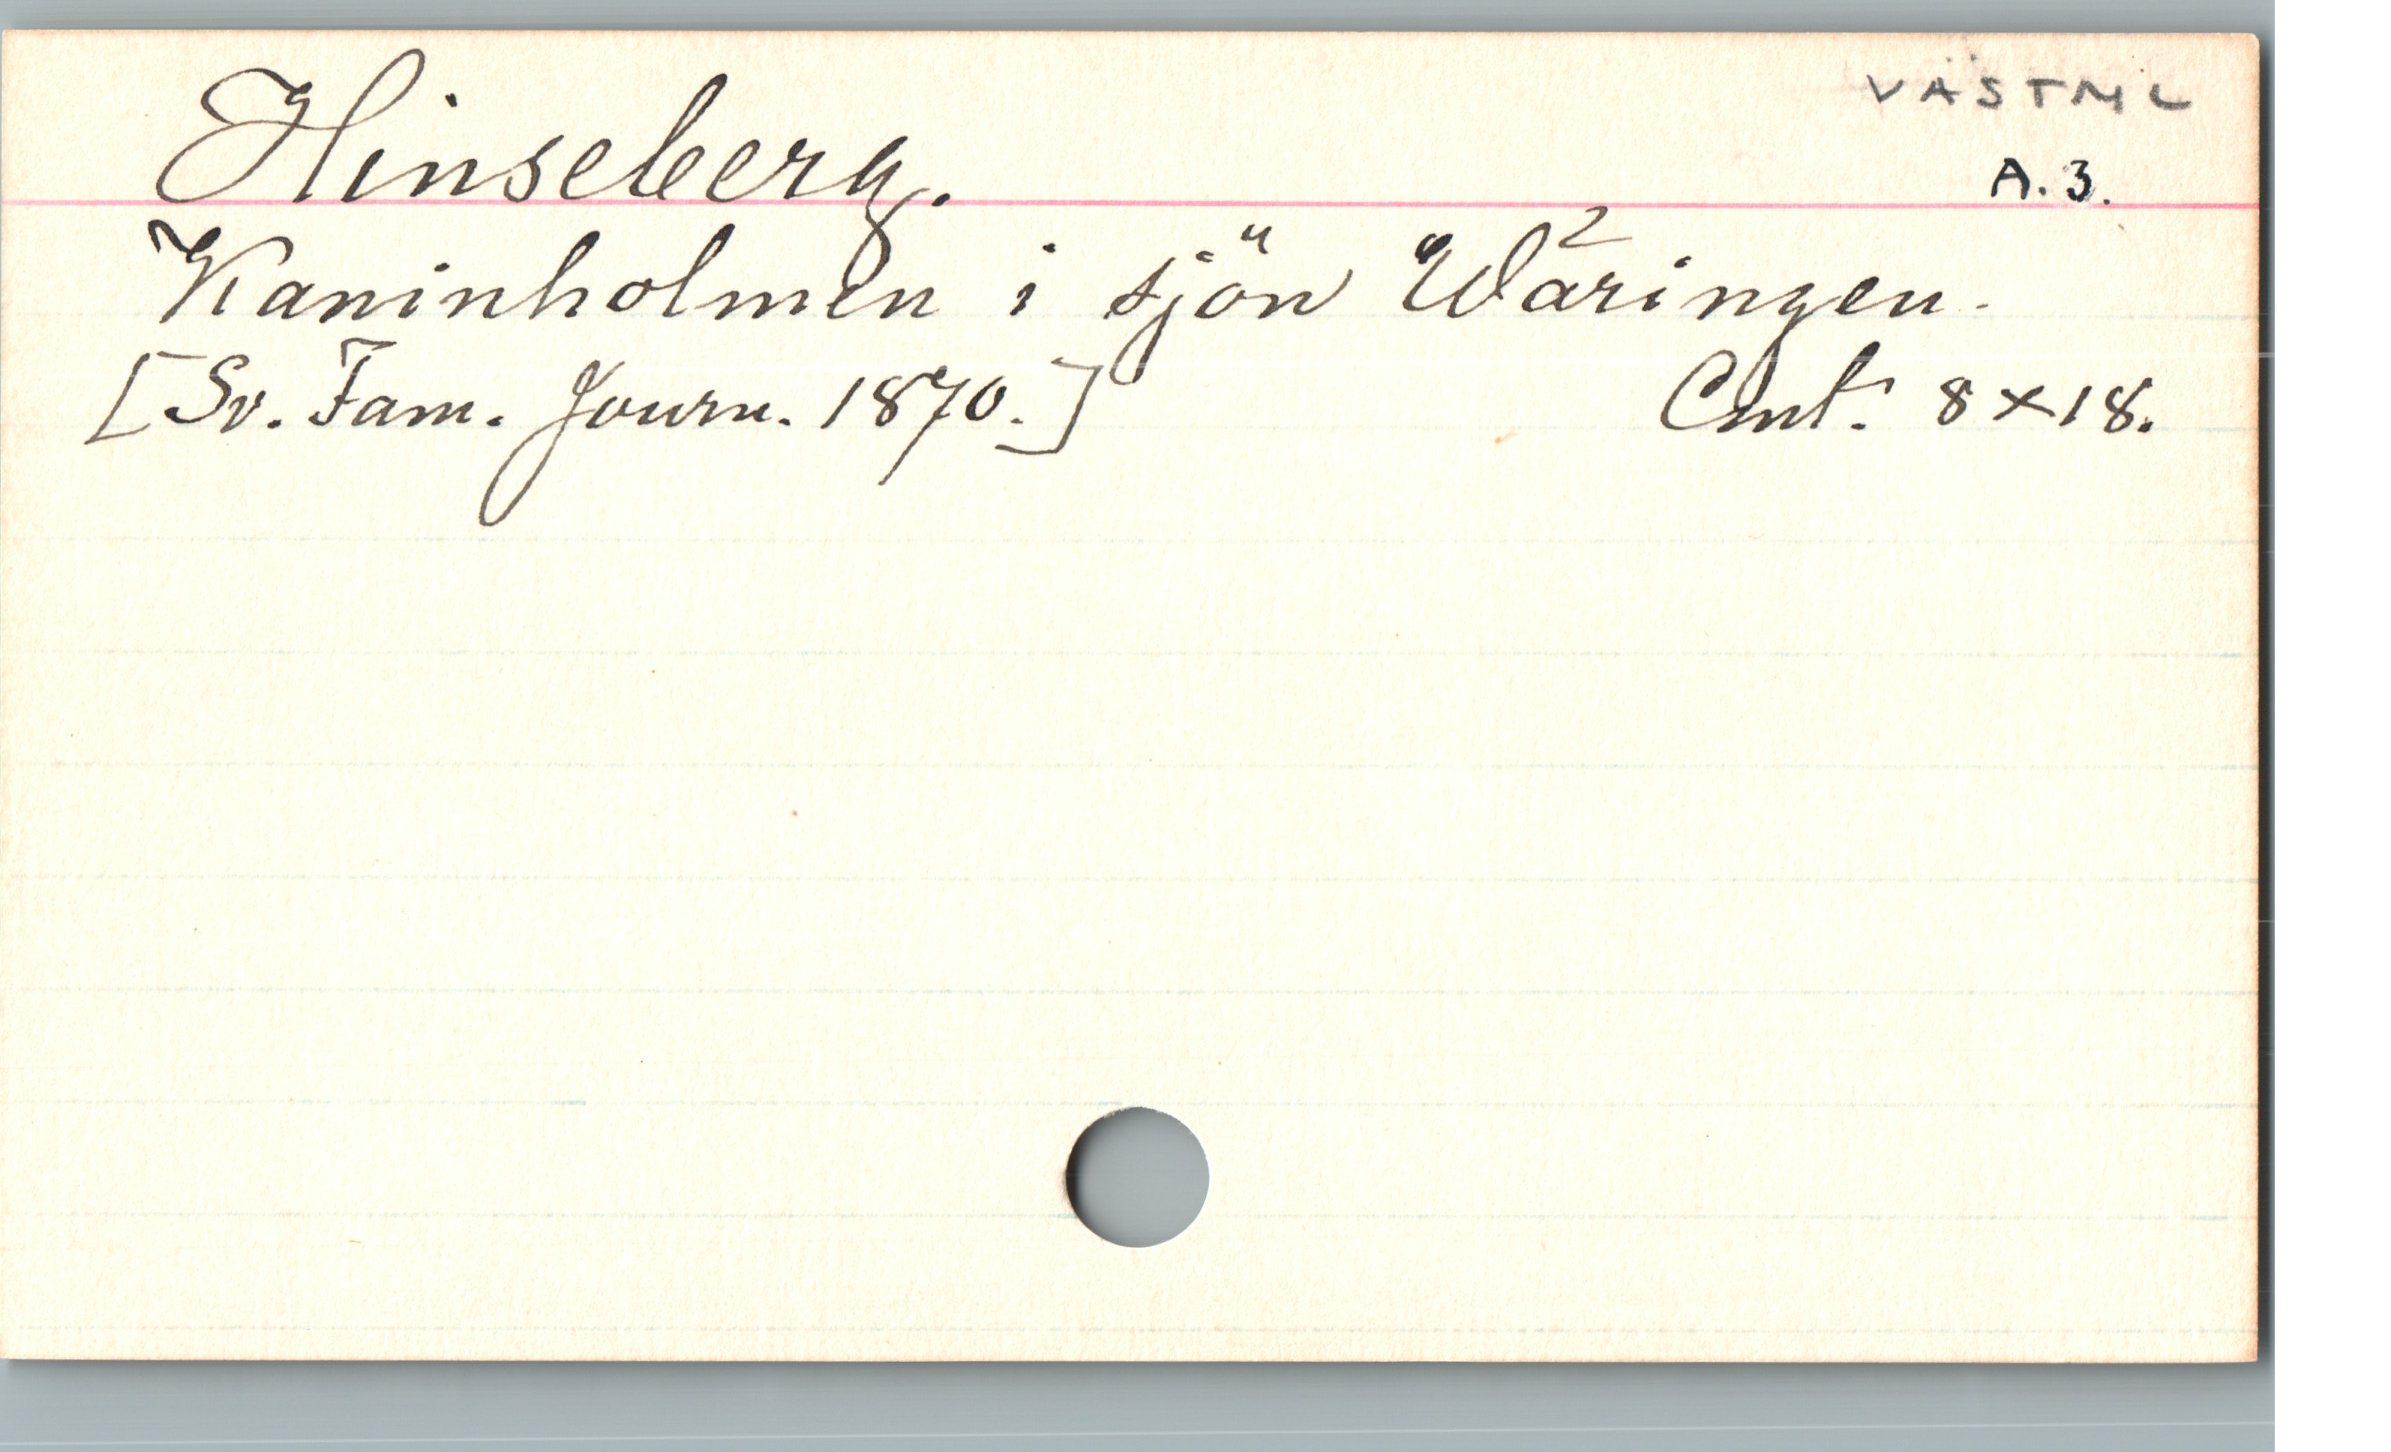 VÄSTML
Hinseberg.
A. 3.
Kaninholmen i sjön Wäringen.
[Sv. Fam. Journ. 1870.] Cmt. 8×18.